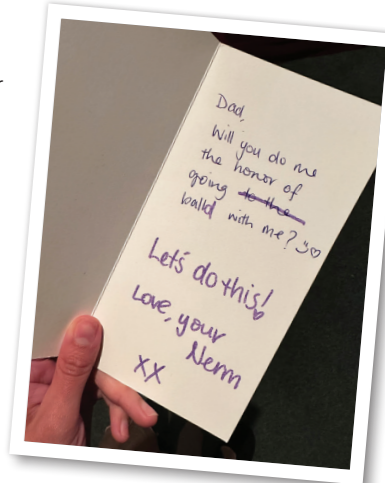 Dad,
Will you do me
the honor of
going to the
balld with me?
Let's do this!
Love, your
Nenn
XX